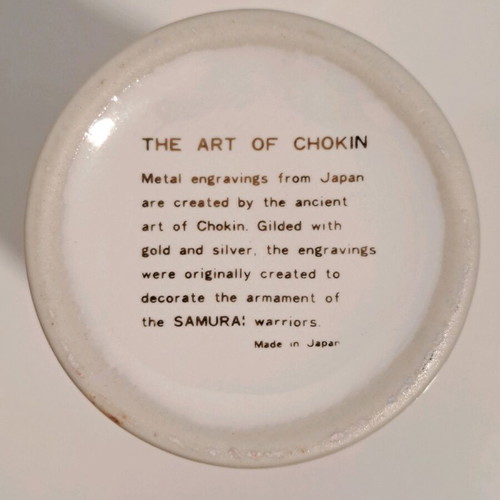 THE ART OF CHOKIN
Metal engravings from Japan
are created by the ancient
art of Chokin. Gilded with
gold and silver, the engravings
were originally created to
decorate the armament of
the SAMURAI warriors.
Made in Japan